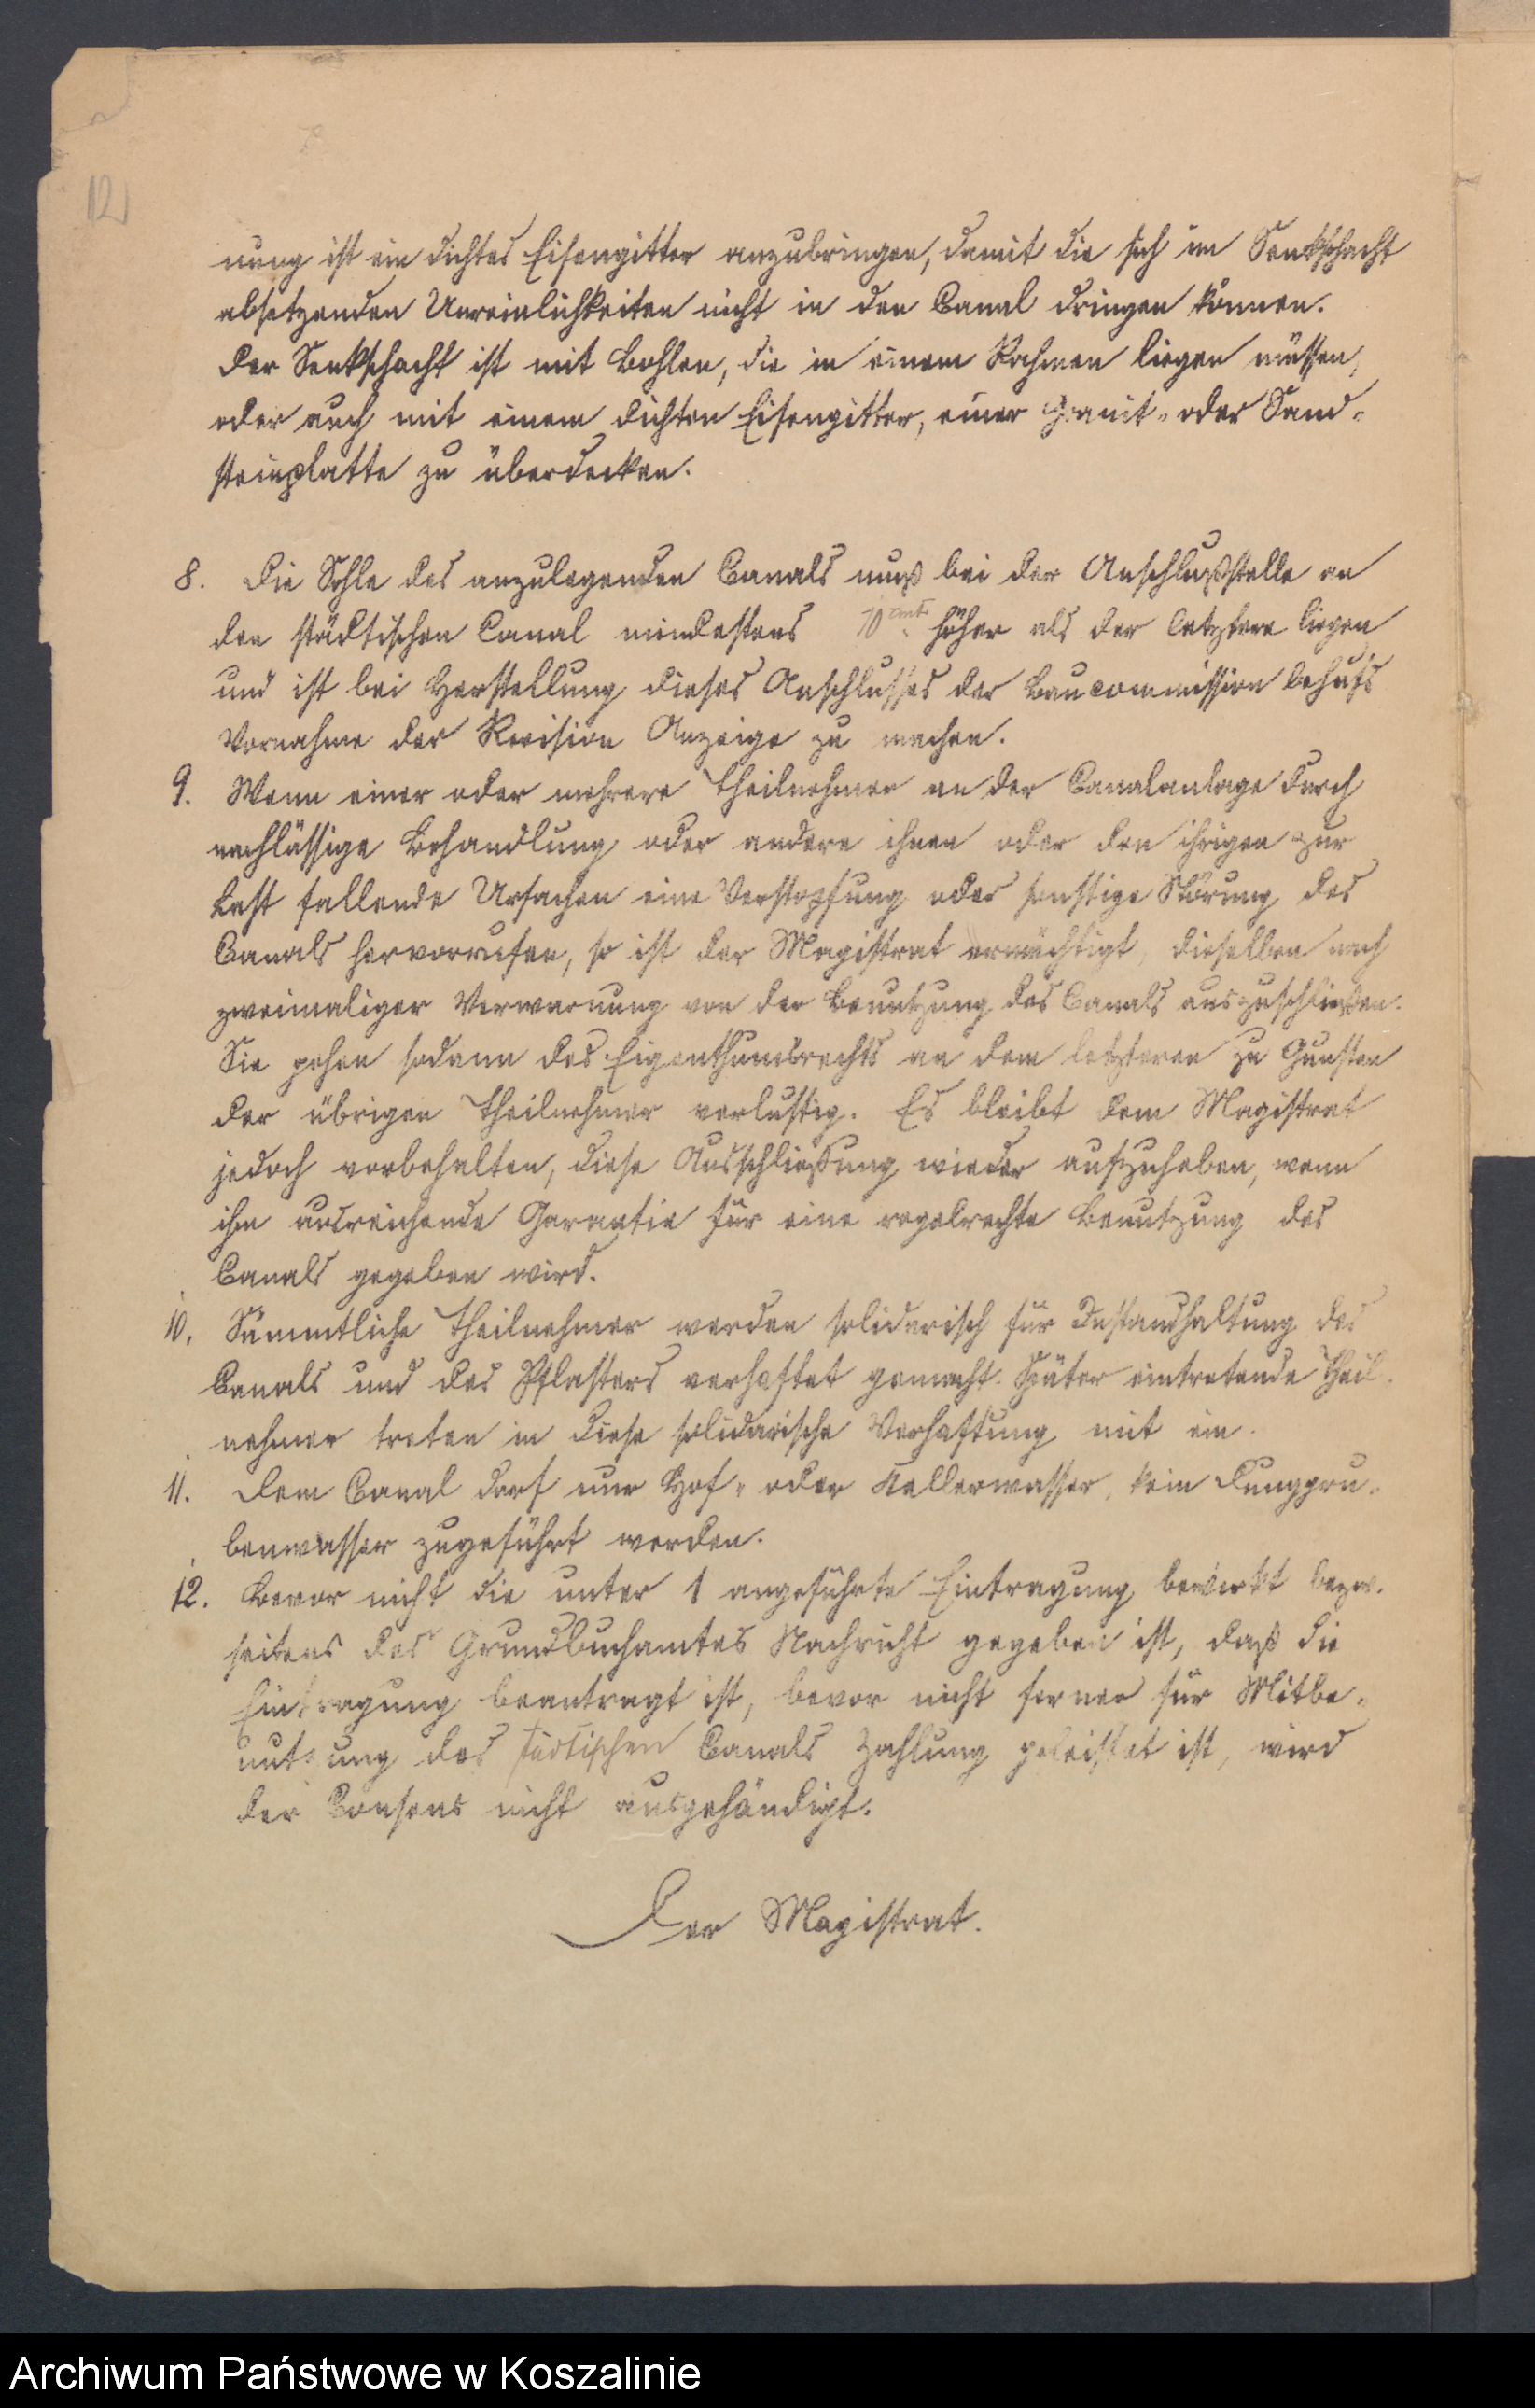 12
nung ist ein dichtes Eisengitter anzubringen, damit die sich im Senkschacht
absetzenden Unreinlichkeiten nicht in den Canal dringen können.
Der Senkschacht ist mit Bohlen, die in einem Rahmen liegen müssen,
oder auch mit einem dichten Eisengitter, einer Granit- oder Sand-
steinplatte zu überdecken.
8. Die Sohle des anzulegenden Canals muß bei der Anschlußstelle an
den städtischen Canal mindestens 10 cmt höher als der letztere liegen
und ist bei Herstellung dieses Anschlusses der Baucommission behufs
Vornahme der Revision Anzeige zu machen.
9. Wenn einer oder mehrere Theilnehmer an der Canalanlage durch
nachlässige Behandlung oder andere ihnen oder den ihrigen zur
Last fallende Ursachen eine Verstopfung oder sonstige Störung des
Canals hervorrufen, so ist der Magistrat ermächtigt, dieselben nach
zweimaliger Verwarnung von der Benutzung des Canals auszuschließen.
Sie gehen sodann des Eigenthumsrechts an dem letzteren zu Gunsten
der übrigen Theilnehmer verlustig. Es bleibt dem Magistrat
jedoch vorbehalten, diese Ausschließung wieder aufzuheben, wenn
ihm ausreichende Garantie für eine regelrechte Benutzung des
Canals gegeben wird.
10. Sämmtliche Theilnehmer werden solidarisch für Instandhaltung des
Canals und des Pflasters verhaftet gemacht. Später eintretende Theil-
nehmer treten in diese solidarische Verhaftung mit ein.
11. Dem Canal darf nur Hof- oder Kellerwasser, kein Dunggru-
benwasser zugeführt werden.
12. Bevor nicht die unter 1 angeführte Eintragung bewirkt bezw.
seitens des Grundbuchamtes Nachricht gegeben ist, daß die
Eintragung beantragt ist, bevor nicht ferner für Mitbe-
nutzung des städtischen Canals Zahlung geleistet ist, wird
der Consens nicht ausgehändigt.
Der Magistrat.
Archiwum Państwowe w Koszalinie